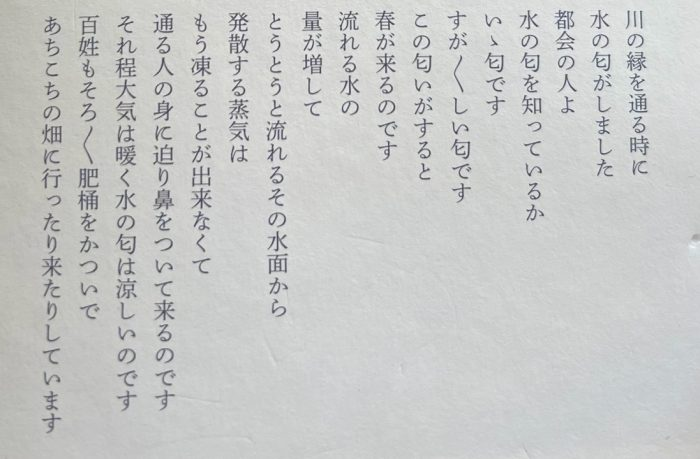 川の縁を通る時に
水の匂がしました
都会の人よ
水の匂を知っているか
いゝ匂です
すが〳〵しい匂です
この匂いがすると
春が来るのです
流れる水の
量が増して
とうとうと流れるその水面から
発散する蒸気は
もう凍ることが出来なくて
通る人の身に迫り鼻をついて来るのです
それ程大気は暖く水の匂は涼しいのです
百姓もそろ〳〵肥桶をかついで
あちこちの畑に行ったり来たりしています